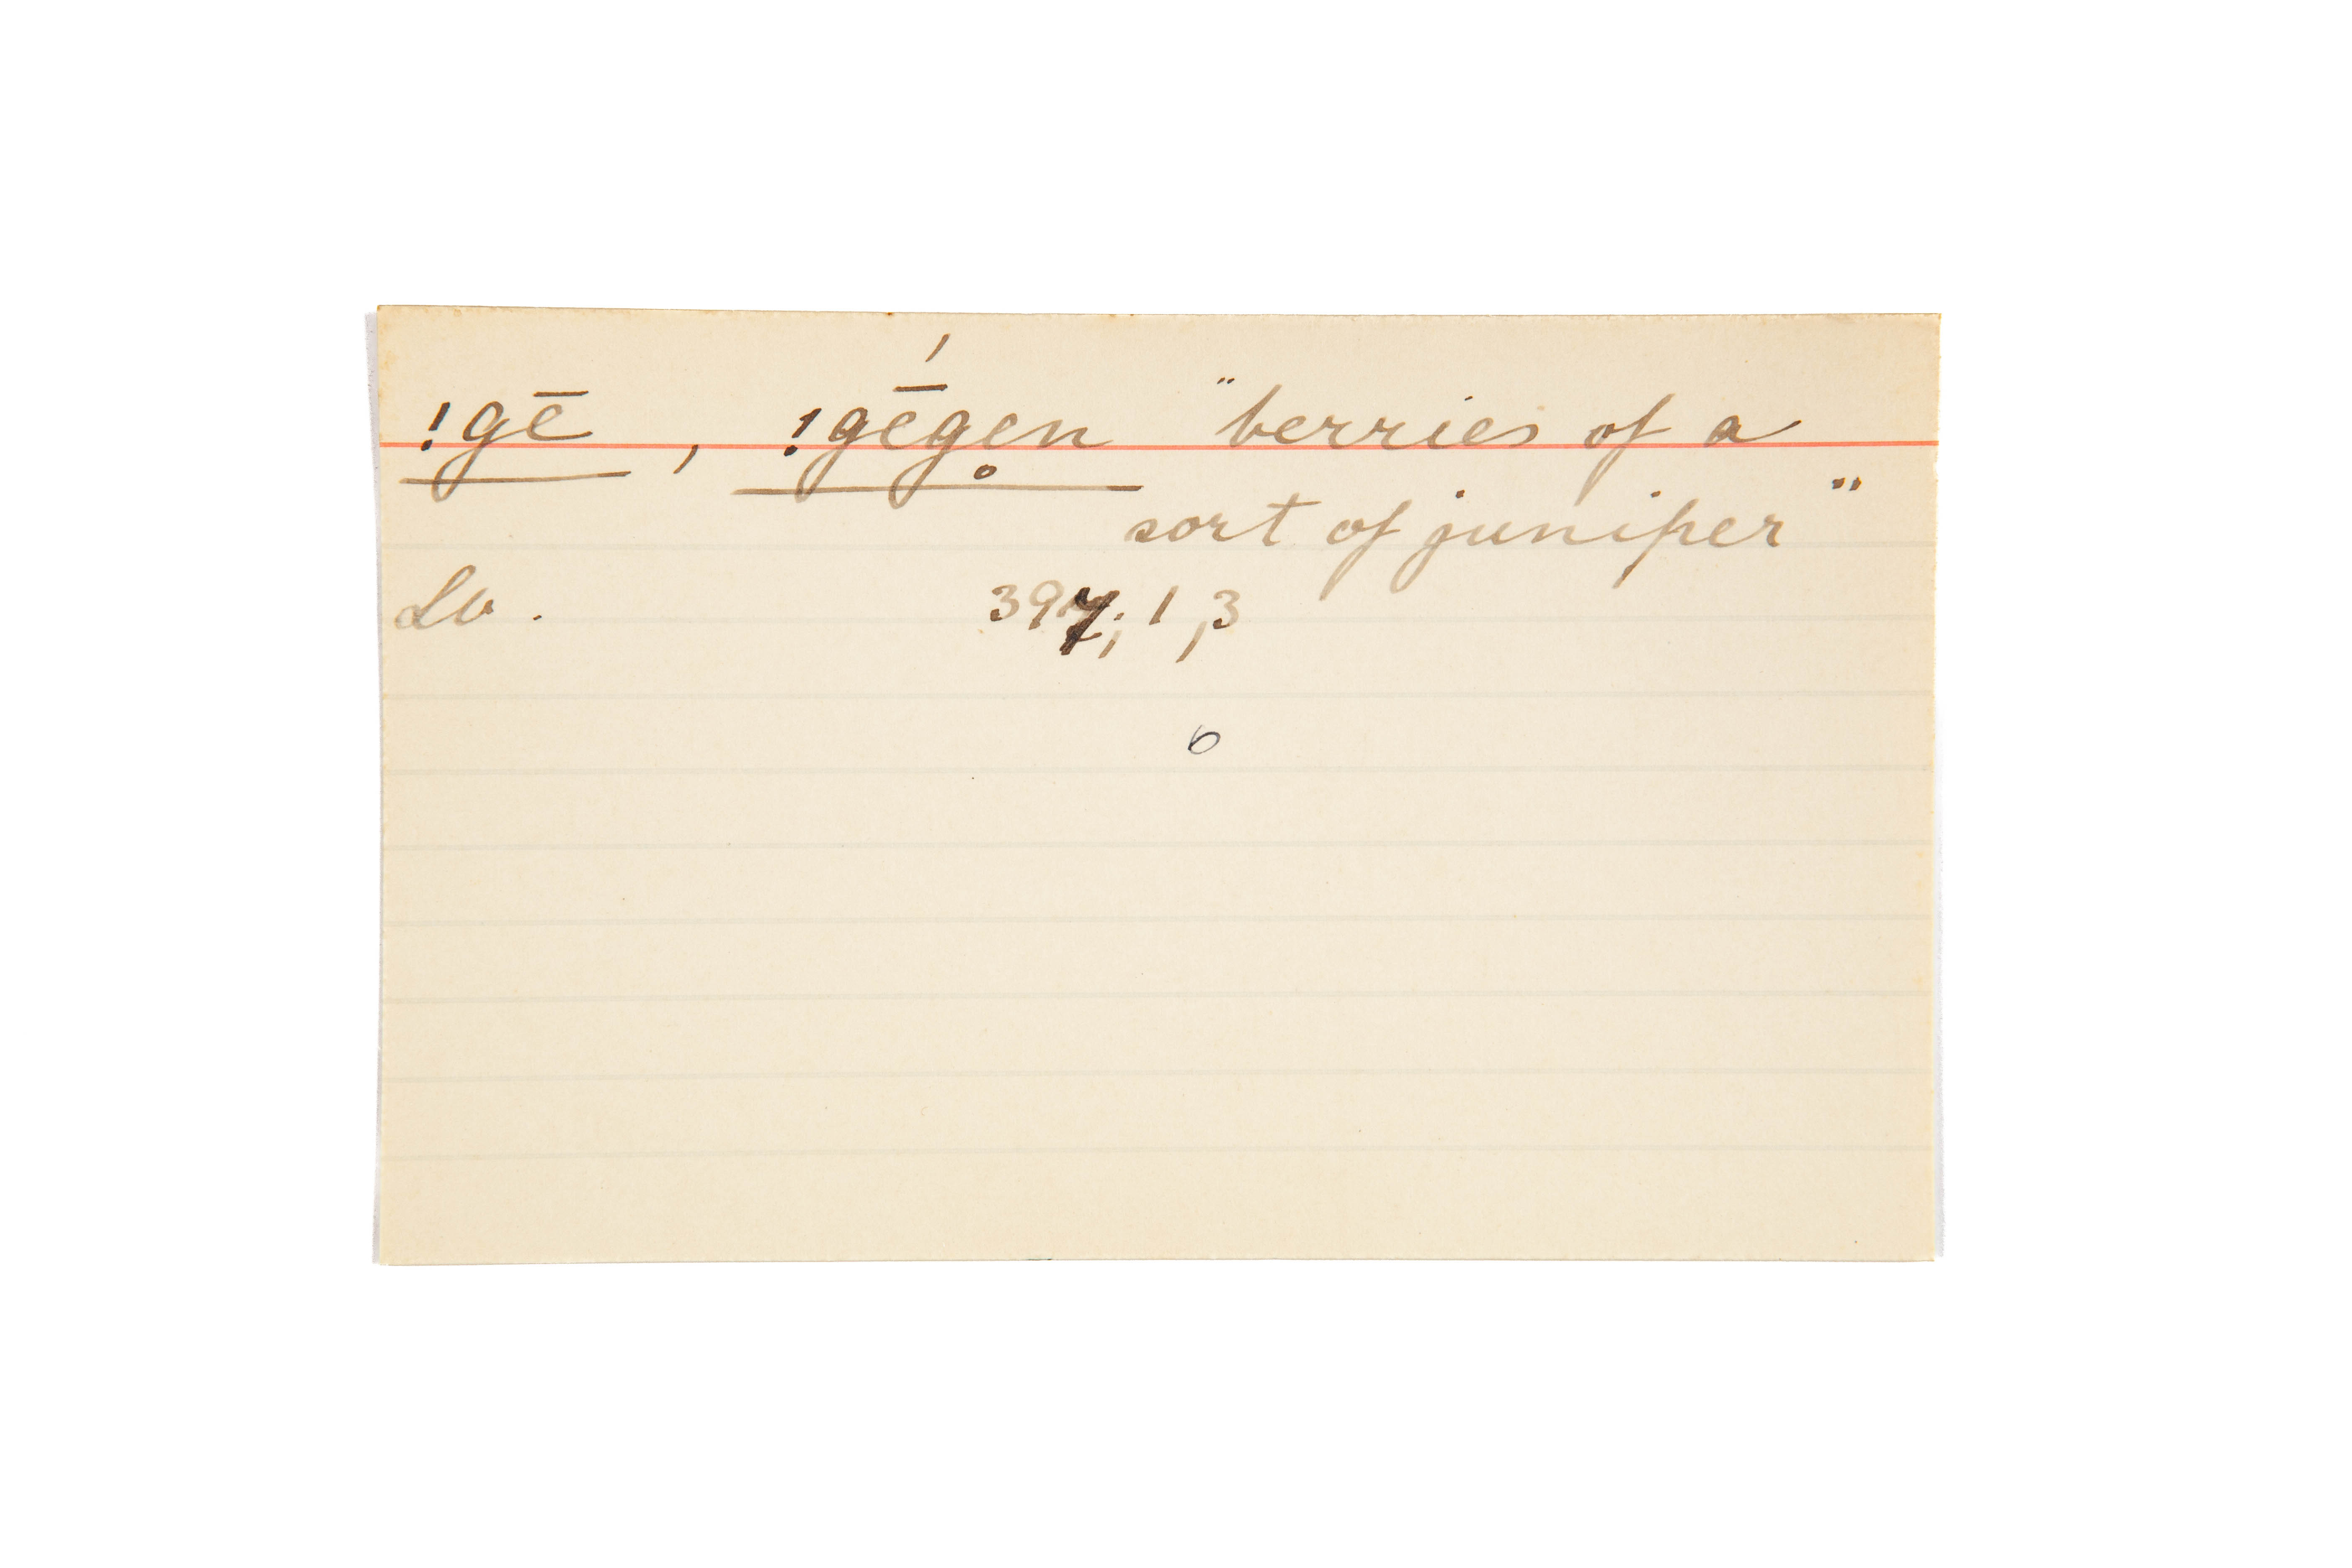 !gē, !gḗgen̥ "berries of a
sort of juniper"
Lb. 397; 1, 3
6